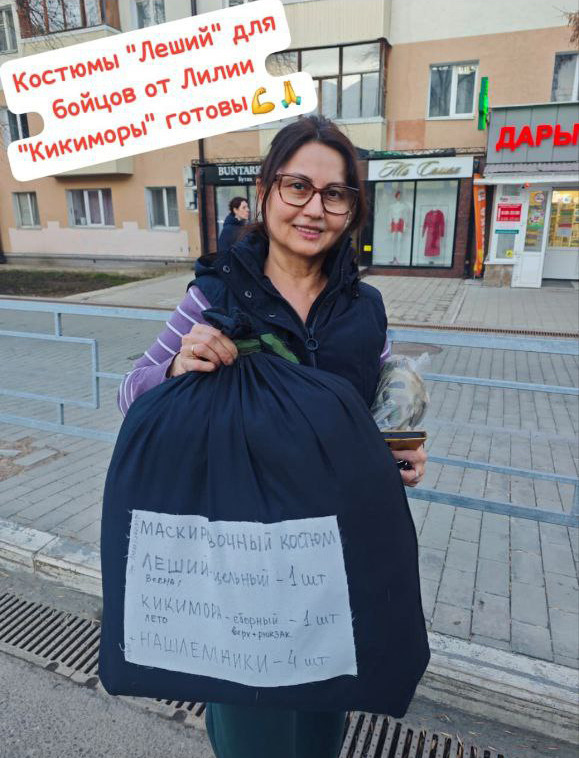 Костюмы "Леший" для
бойцов от Лилии
"Кикиморы" готовы💪🙏
BUNTARI
ДАРЫ
МАСКИРОВОЧНЫЙ КОСТЮМ
ЛЕШИЙ-цельный - 1 шт
весна!
КИКИМОРА - сборный - 1 шт
лето верх+рюкзак
- НАШЛЕМНИКИ - 4 шт